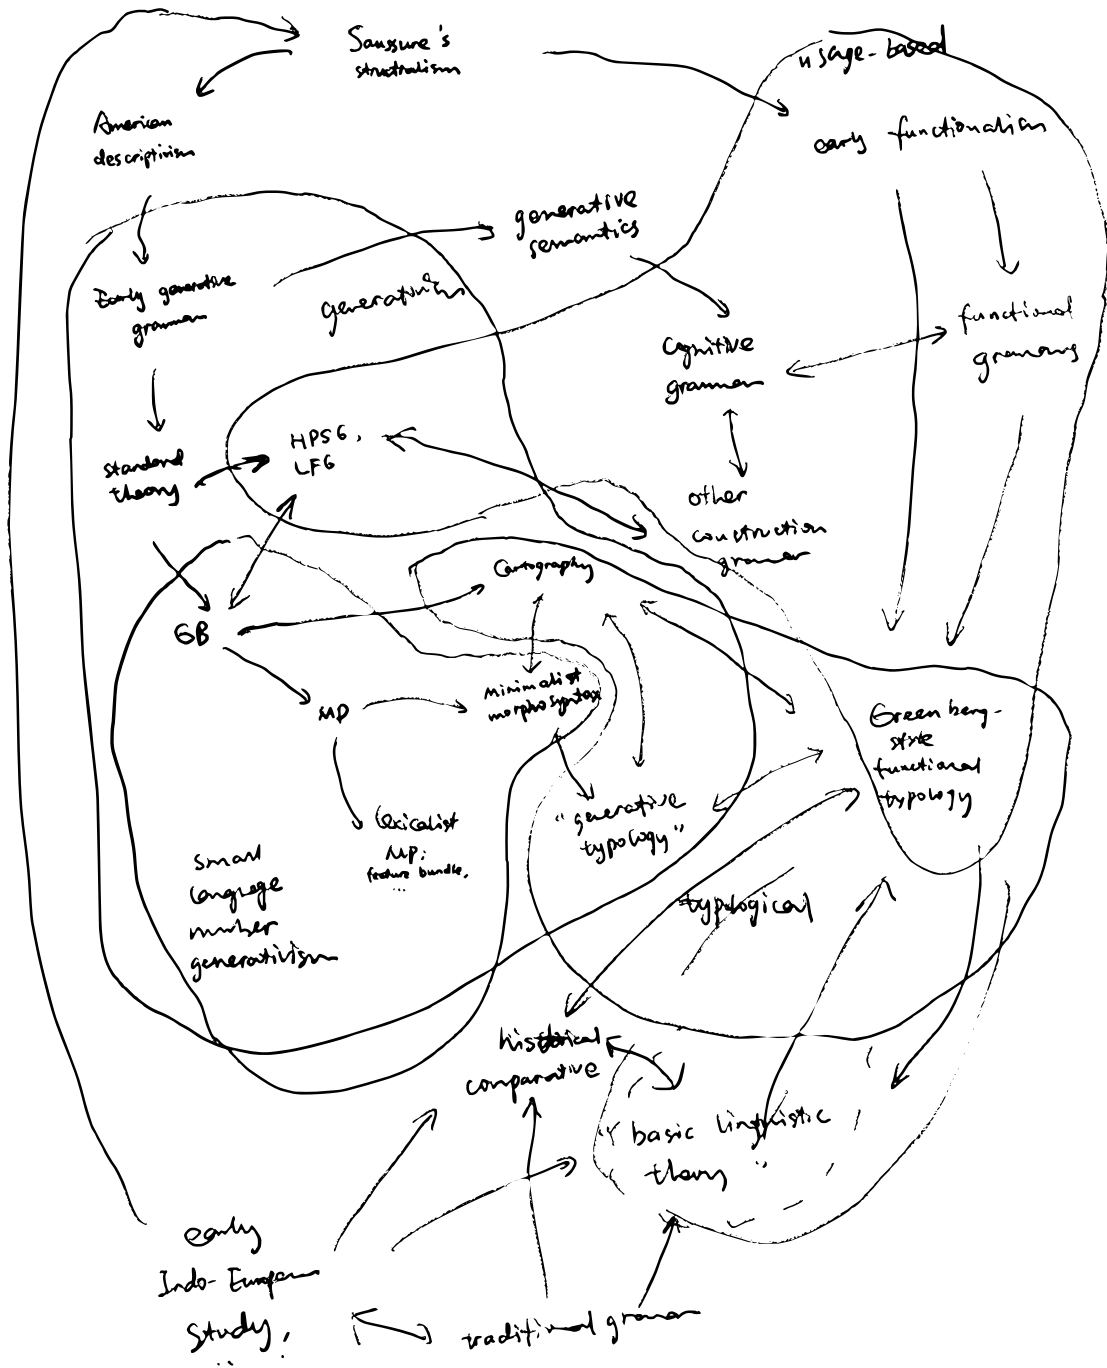 Saussure's
structralism
usage-based
American
descriptivism
early functionalism
generative
semantics
Early generative
grammar
generativism
functional
grammars
cognitive
grammar
HPSG,
LFG
standard
theory
other
construction
grammar
Cartography
GB
minimalist
morphosyntax
MP
Greenberg-
style
functional
typology
"generative
typology"
lexicalist
MP:
feature bundle,
...
small
language
number
generativism
typological
historical
comparative
"basic linguistic
theory"
early
Indo-European
study,
...
traditional grammar